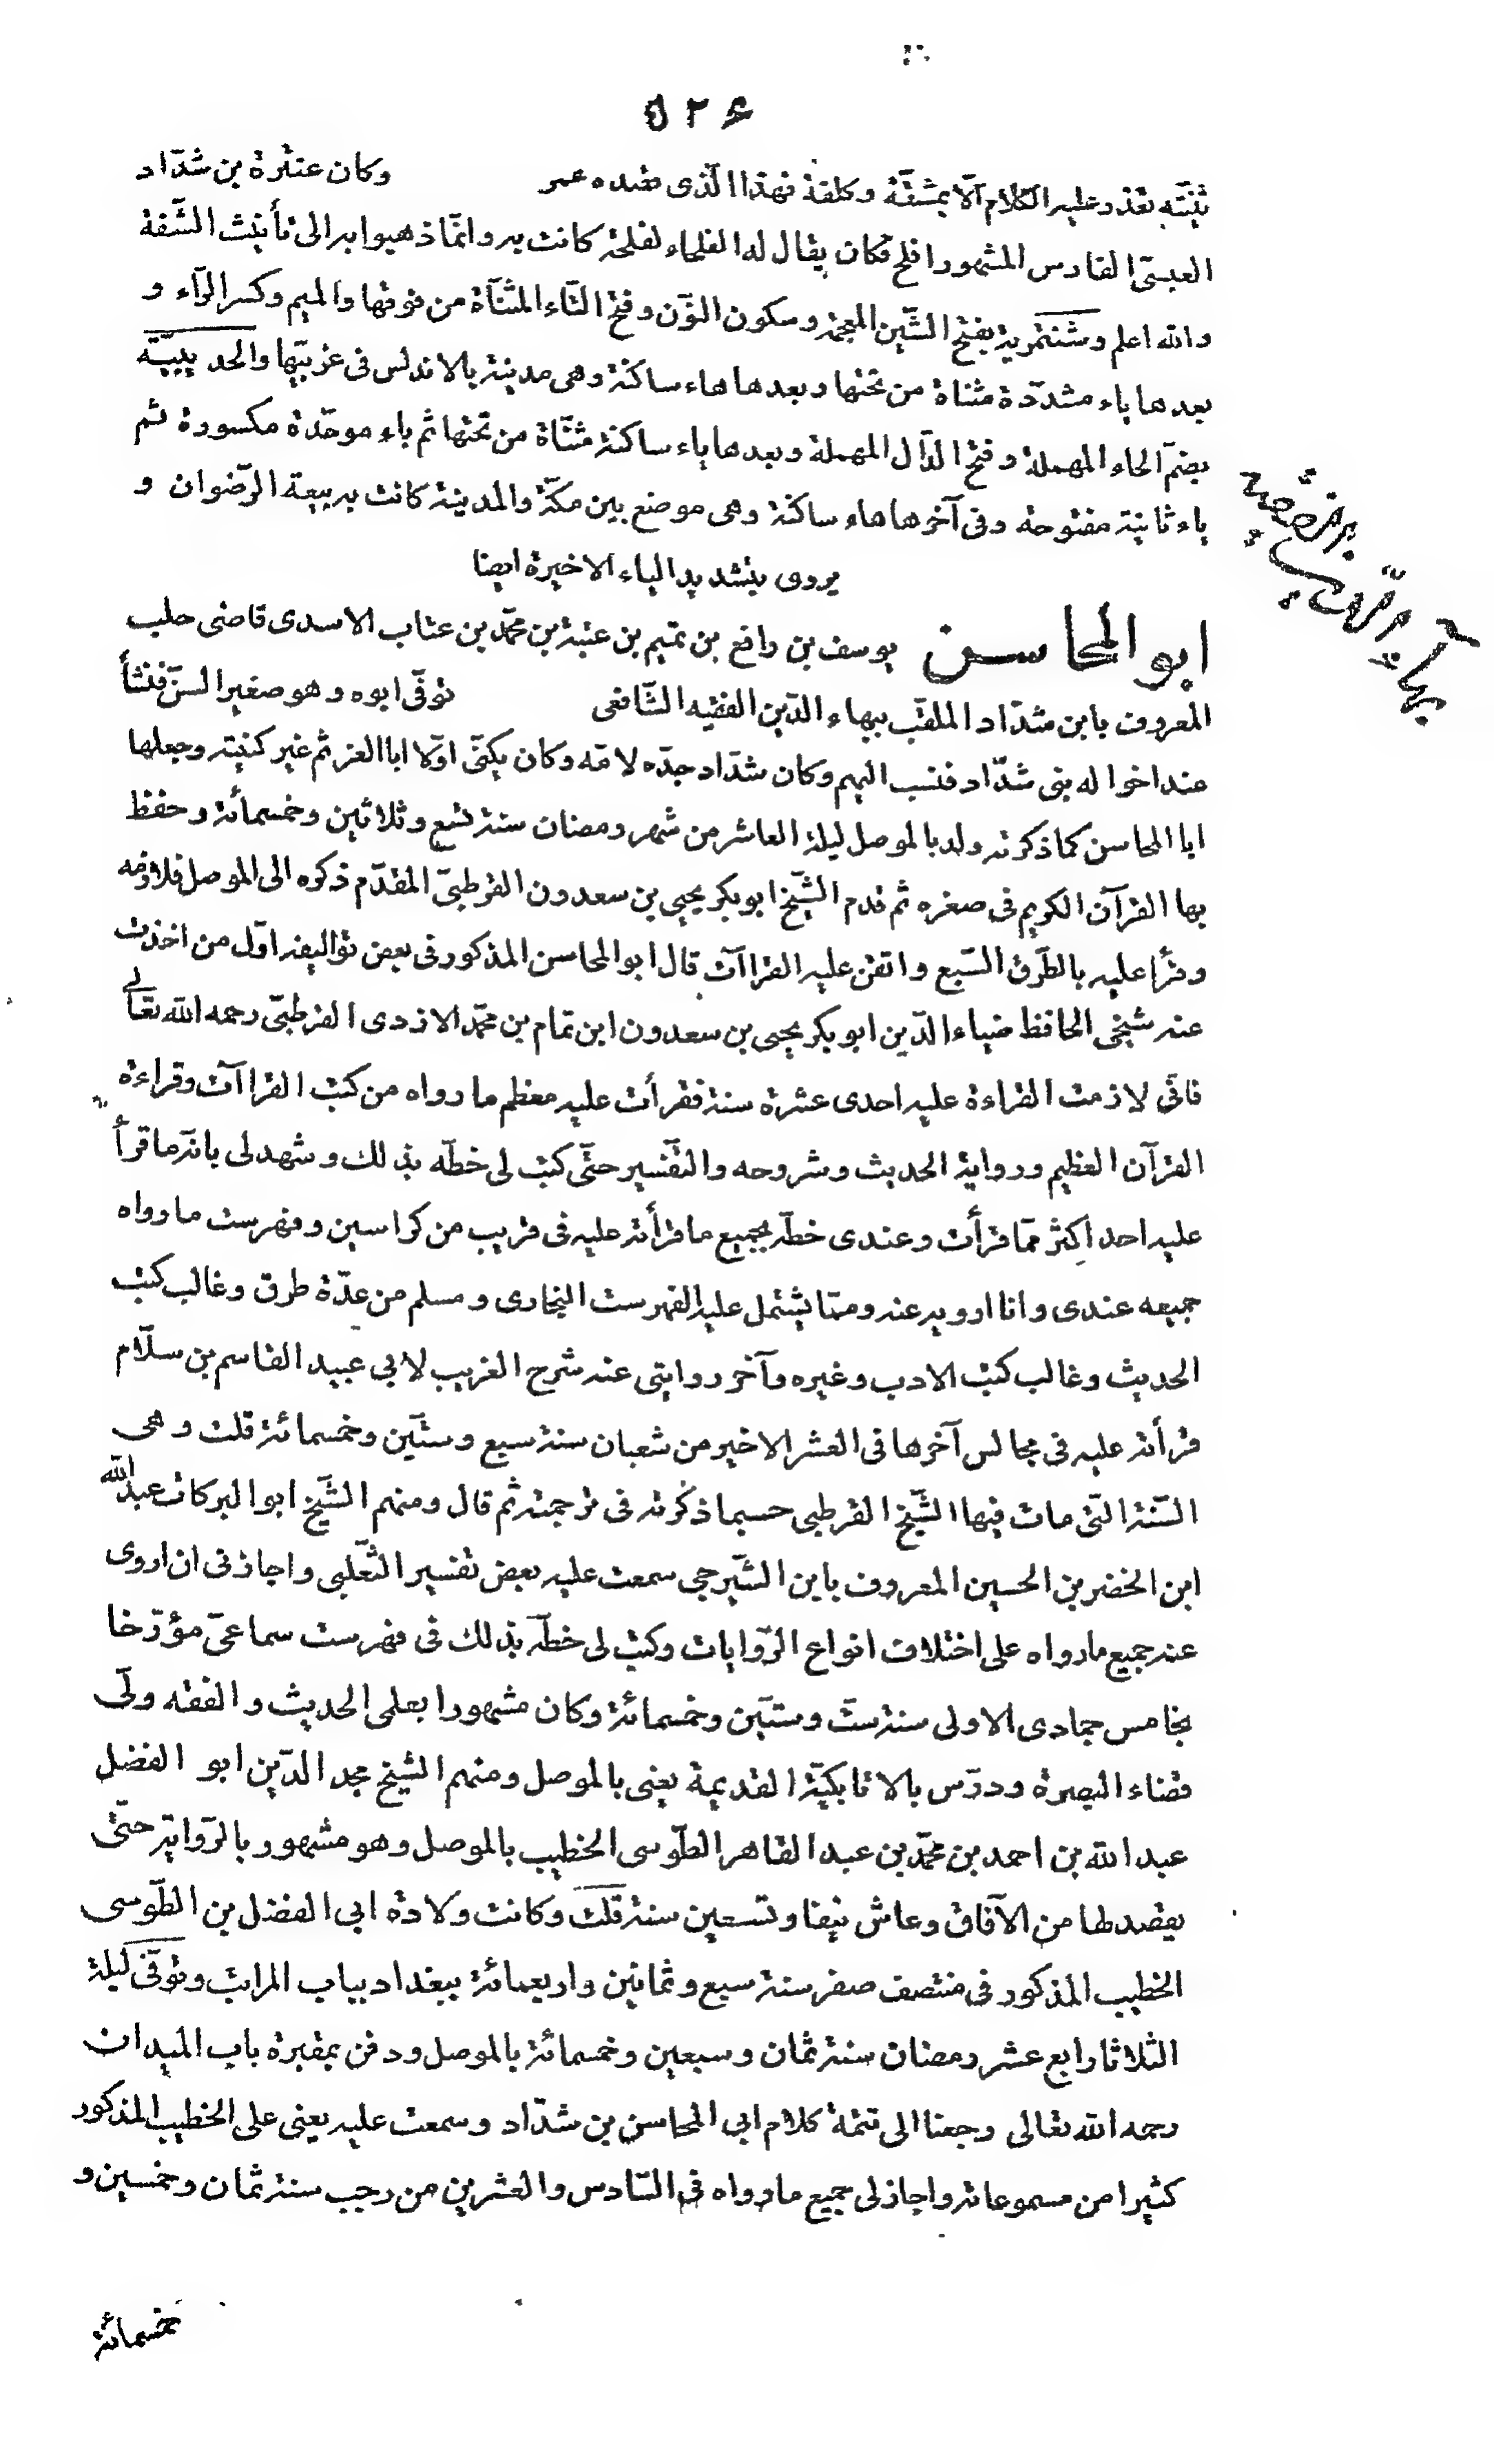 ۵۲۶
ثنيّته تعذر عليه الكلام الّا بمشقّة وكلفة فهذا الّذى قصده عمر وكان عنترة بن شدّاد
العبسىّ الفارس المشهور افلح فكان يقال له الفلحاء لفلحة كانت به وانّما ذهبوا به الى تأنيث الشّفة
والله اعلم وشنتمرية بفتح الشّين المعجمة وسكون النّون وفتح التّاء المثنّاة من فوقها والميم وكسر الرّاء و
بعدها ياء مشدّدة مثناة من تحتها وبعدها هاء ساكنة وهى مدينة بالاندلس فى غربيّها والحديبيّة
بضمّ الحاء المهملة وفتح الدّال المهملة وبعدها ياء ساكنة مثنّاة من تحتها ثم باء موحّدة مكسورة ثم
ياء ثانية مفتوحة وفى آخرها هاء ساكنة وهى موضع بين مكّة والمدينة كانت به بيعة الرّضوان و
يروى بتشديد الياء الاخيرة ايضا
ابو المحاسن يوسف بن رافع بن تميم بن عتبة بن محمّد بن عتاب الاسدى قاضى حلب
المعروف بابن شدّاد الملقّب ببهاء الدّين الفقيه الشّافعى توفّى ابوه وهو صغير السنّ فنشأ
عند اخواله بنى شدّاد فنسب اليهم وكان شدّاد جدّه لامّه وكان يكنّى اوّلا ابا العز ثم غير كنيته وجعلها
ابا المحاسن كما ذكرته ولد بالموصل ليلة العاشر من شهر رمضان سنة تسع وثلاثين وخمسمائة وحفظ
بها القرآن الكريم فى صغره ثم قدم الشّيخ ابو بكر يحيى بن سعدون القرطبىّ المقدّم ذكره الى الموصل فلازمه
وقرأ عليه بالطّرق السّبع واتقن عليه القراآت قال ابو المحاسن المذكور فى بعض تواليفه اوّل من اخذت
عنه شيخى الحافظ ضياء الدّين ابو بكر يحيى بن سعدون ابن تمام بن محمّد الازدى القرطبىّ رحمه الله تعالى
فانّى لازمت القراءة عليه احدى عشرة سنة فقرأت عليه معظم ما رواه من كتب القراآت وقراءة
القرآن العظيم ورواية الحديث وشروحه والتفّسير حتّى كتب لى خطّه بذلك وشهد لى بانّه ما قرأ
عليه احد اكثر ممّا قرأت وعندى خطّه بجميع ما قرأته عليه فى قريب من كراسين وفهرست ما رواه
جميعه عندى وانا ارويه عنه وممّا يشتمل عليه الفهرست البخارى ومسلم من عدّة طرق وغالب كتب
الحديث وغالب كتب الادب وغيره وآخر روايتى عنه شرح الغريب لابى عبيد القاسم بن سلّام
قرأته عليه فى مجالس آخرها فى العشر الاخير من شعبان سنة سبع وستّين وخمسمائة قلت وهى
السّنة الّتى مات فيها الشّيخ القرطبى حسبما ذكرته فى ترجمته ثم قال ومنهم الشّيخ ابو البركات عبد الله
ابن الخضر بن الحسين المعروف بابن الشّيرجى سمعت عليه بعض تفسير الثّعلبى واجازنى ان اروى
عنه جميع ما رواه على اختلاف انواع الرّوايات وكتب لى خطّه بذلك فى فهرست سماعىّ مؤرّخا
بخامس جمادى الاولى سنة ستّ وستّين وخمسمائة وكان مشهورا بعلمى الحديث والفقه ولّى
قضاء البصرة ودرّس بالاتابكيّة القديمة يعنى بالموصل ومنهم الشّيخ مجد الدّين ابو الفضل
عبد الله بن احمد بن محمّد بن عبد القاهر الطّوسى الخطيب بالموصل وهو مشهور بالرّواية حتّى
يقصد لها من الآفاق وعاش نيفا وتسعين سنة قلت وكانت ولادة ابى الفضل بن الطّوسى
الخطيب المذكور فى منتصف صفر سنة سبع وثمانين واربعمائة ببغداد بباب المراتب وتوفّى ليلة
الثلاثا رابع عشر رمضان سنة ثمان وسبعين وخمسمائة بالموصل ودفن بمقبرة باب الميدان
رحمه الله تعالى رجعنا الى تتمة كلام ابى المحاسن بن شدّاد وسمعت عليه يعنى على الخطيب المذكور
كثيرا من مسموعاته واجاز لى جميع ما رواه فى السّادس والعشرين من رجب سنة ثمان وخمسين و
خمسمائة